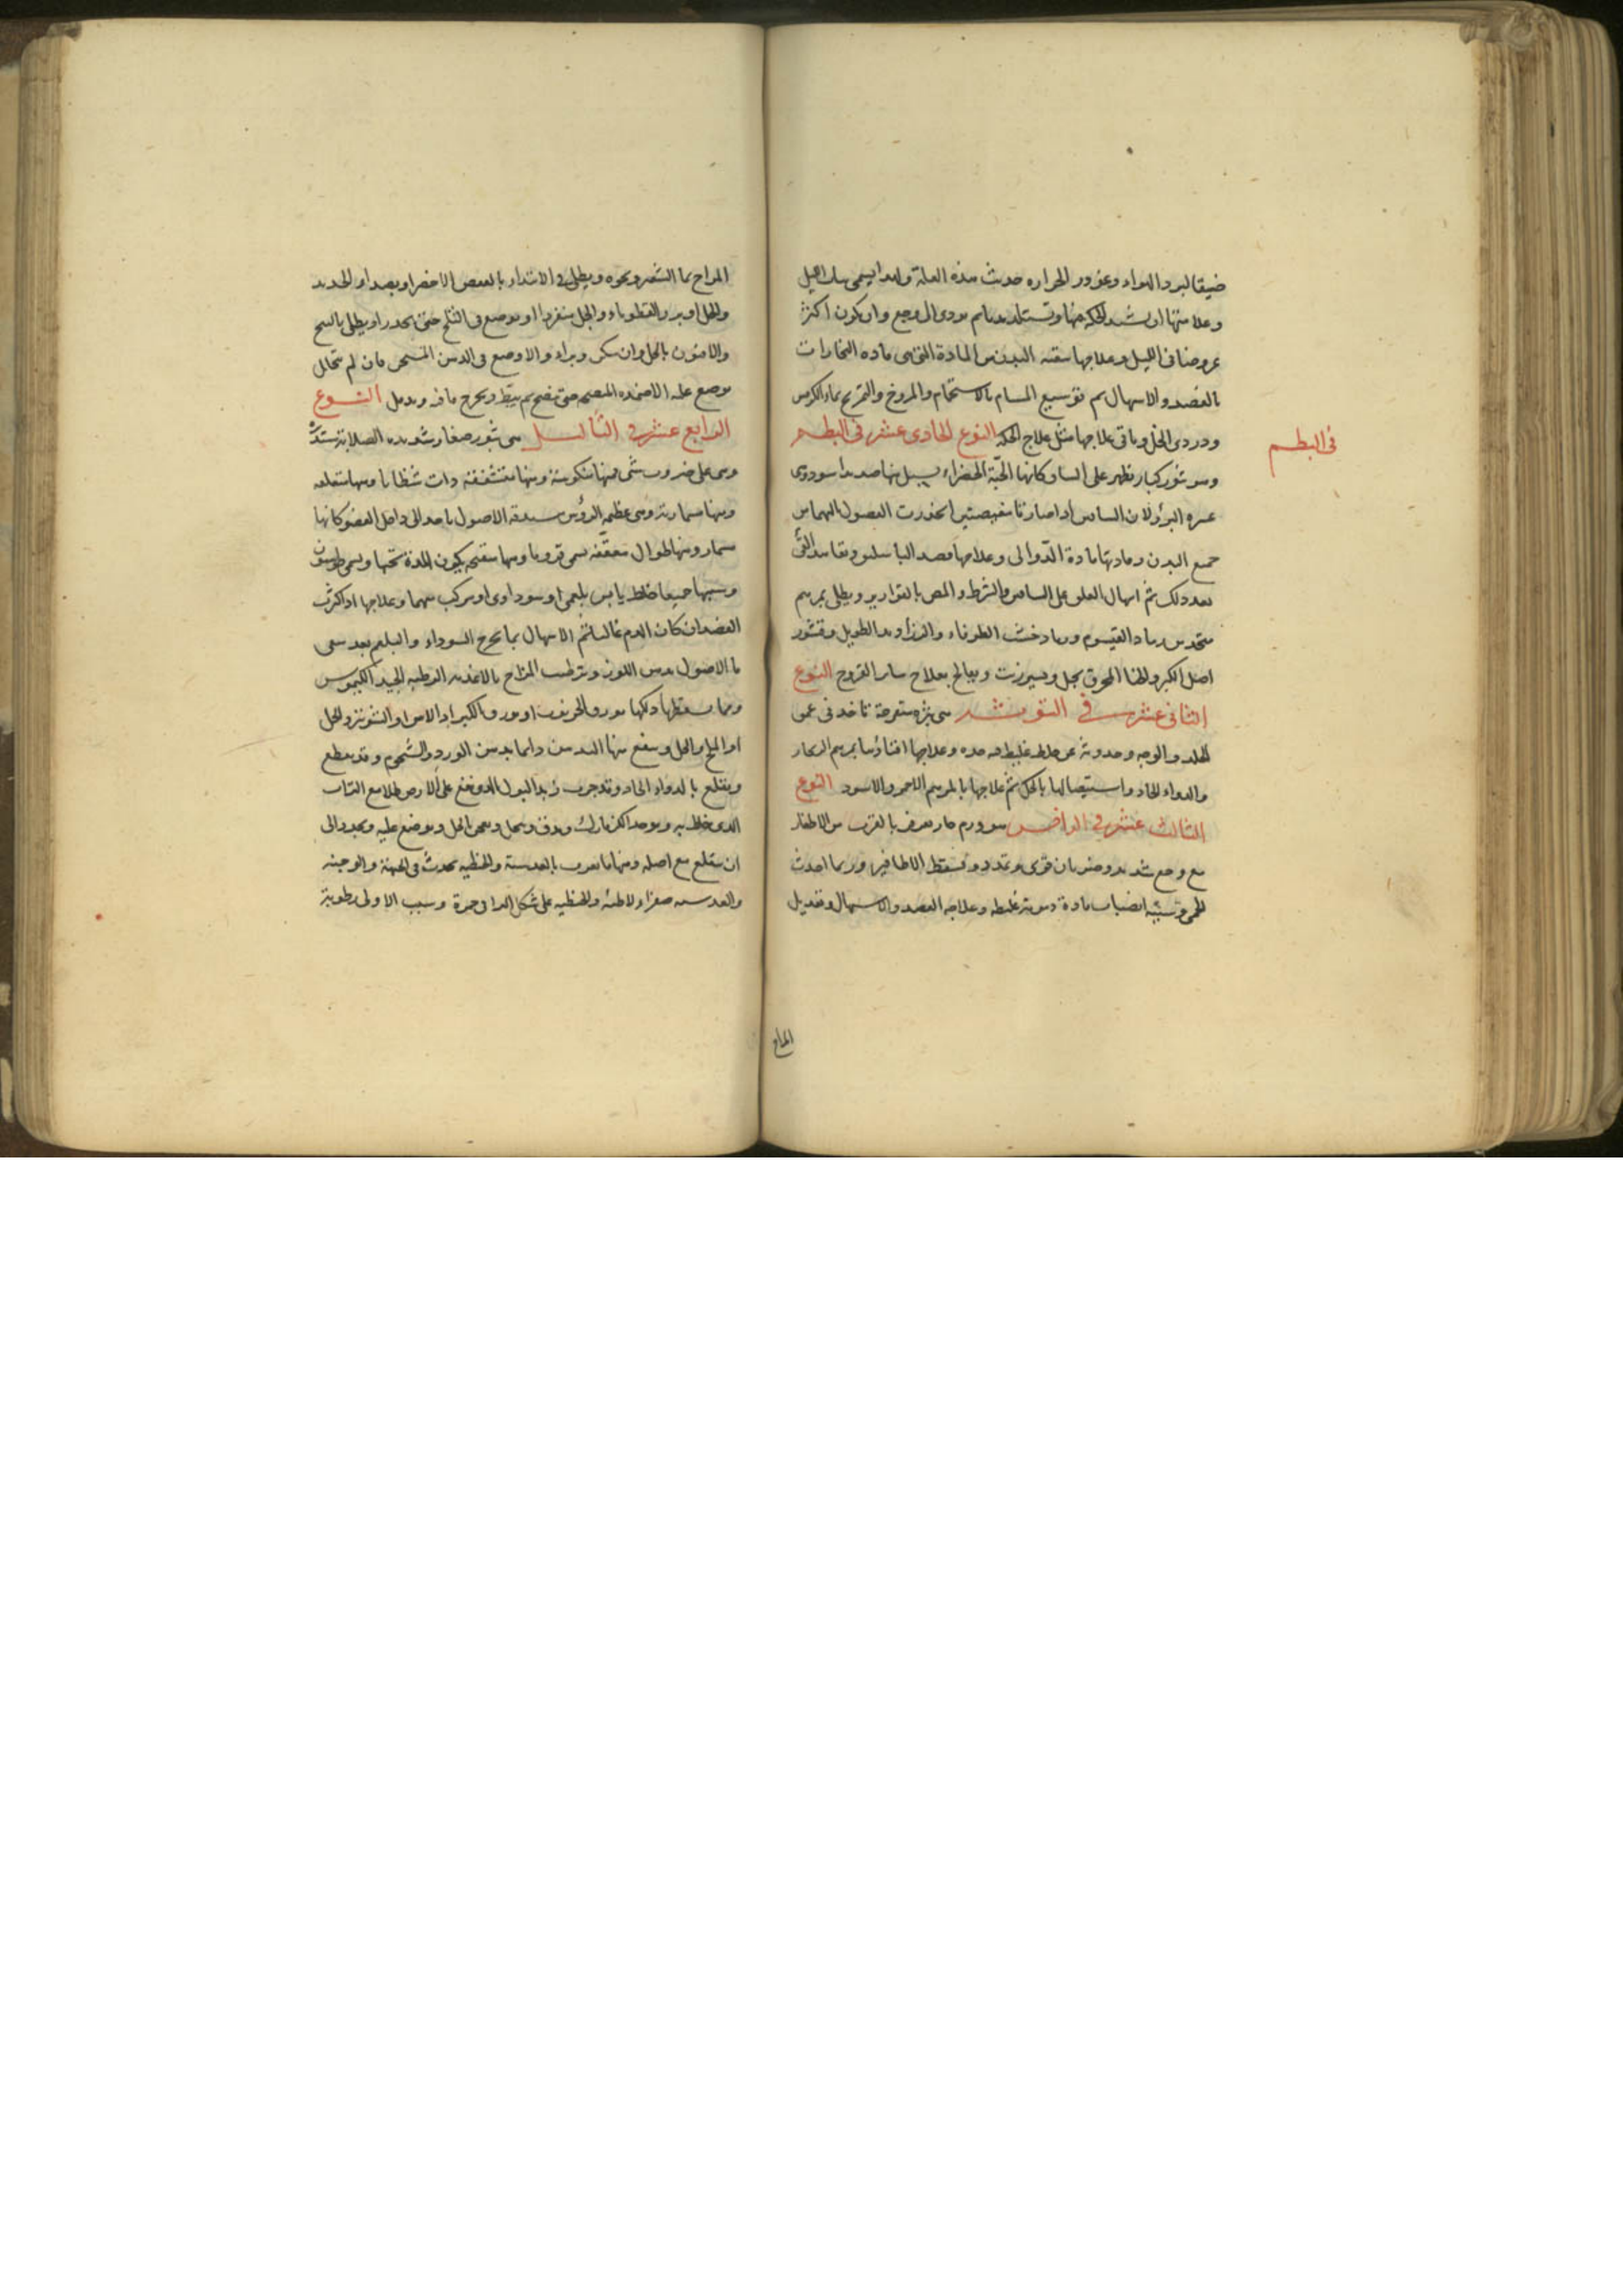 ضيقا لبرد الهواء وغور الحراره حدثت هذه العلة ولهذا يسمى بنات الليل
وعلامتها ان يشتد الحكه منها وتستلذ ثم يودى الى وجع وان يكون اكثر
عروضها فى الليل وعلاجها تنقيه البدن من المادة التى هى ماده البخارات
بالفصد والاسهال ثم توسيع المسام بالاستحمام والمروخ والتمريخ بماء الكرفس
ودردى الخل وباقى علاجها مثل علاج الحكه النوع الحادى عشر فى البطم
فى البطم
وهو بثور كبار تظهر على الساق كانها الحبّة الخضراء يسيل منها صديد اسود وهى
عسره البرؤ لان الساقين اذا صارتا انحدرت الفضول اليهما من
جميع البدن ومادتها مادة الدّوالى وعلاجها فصد الباسليق القئ
بعد ذلك ثم ارسال العلق على الساقين والشرط والمص بالقوارير ويطلى بمرهم
متخذ من رماد القيسوم ورماد خشب الطرفاء والزراوند الطويل وقشور
اصل الكبر المحرق بخل ويسير زيت ويعالج بعلاج ساير القروح النوع
الثانى عشر فى التوثه هى بثره متقرحة تاخذ فى عمق
الجلد والوجه وحدوثه عن خلط غليظ فيه حده وعلاجها افناؤها بمرهم الزنجار
والدواء الحاد واستيصالها بالحك ثم علاجها بالمرهم الاحمر والاسود النوع
الثالث عشر فى الداخس هو ورم حار يعرض بالقرب من الاظفار
مع وجع شديد وضربان قوى وتمدد ويسقط الاظافير وربما احدث
الحمى وسببه انصباب مادة دمويه غليظه وعلاجه الفصد والاسهال وتعديل
المزاج
المزاج بما الشعير ونحوه ويطلى فى الابتداء بالعفص الاخضر او بصداء الحديد
والخل او بزر القطوناء والخل منفردا او يوضع فى الثلج حتى يخدر او يطلى بالبنج
والافيون بالخل فان سكن وبراء والا وضع فى الدهن المسخن فان لم يتحلل
يوضع عليه الاضمده المنضجه حتى ينضج ثم يبط ويخرج ما فيه ويدمل النوع
الرابع عشر فى الثآليل هى بثور صغار شديده الصلابة مستديره
وهى على ضروب شتى فمنها منكوسة ومنها متشققه ذات شظايا ومنها متعلقه
ومنها مسماريه وهى عظيمه الرؤس الاصول الى داخل العضو كانها
مسمار ومنها طوال معقفه تسمى قرونا ومنها متفتحه يكون المدة تحتها ويسمى
وسببها جميعا خلط يابس بلغمى او سوداوى او مركب منهما وعلاجها اذا كثرت
الفصد ان كان الدم غالبا ثم الاسهال بما يخرج السوداء والبلغم بعد سقى
ما الاصول بدهن اللوز وترطيب المزاج بالاغذيه الرطبه الجيد الكيموس
ومما يسقطها دلكها بورق الخرنوب او بورق الكبر او الاس او الشونيز والخل
او الملح والخل وينفع منها التدهين دايما بدهن الورد والشحوم وقد يقطع
ويقلع بالدواء الحاد وقد جرب زبد البول الذى يقع على الارض طلا مع التراب
الذى خلط به ويوجد ويدق وينخل ويعجن بالخل ويوضع عليه الى
ان ينقلع مع اصله ومنها ما تعرف بالعدسية والحنطيه تحدث فى الجبهة والوجنه
والعدسيه صغار لاطئه والحنطيه على شكل حمرة وسبب الاولى رطوبة